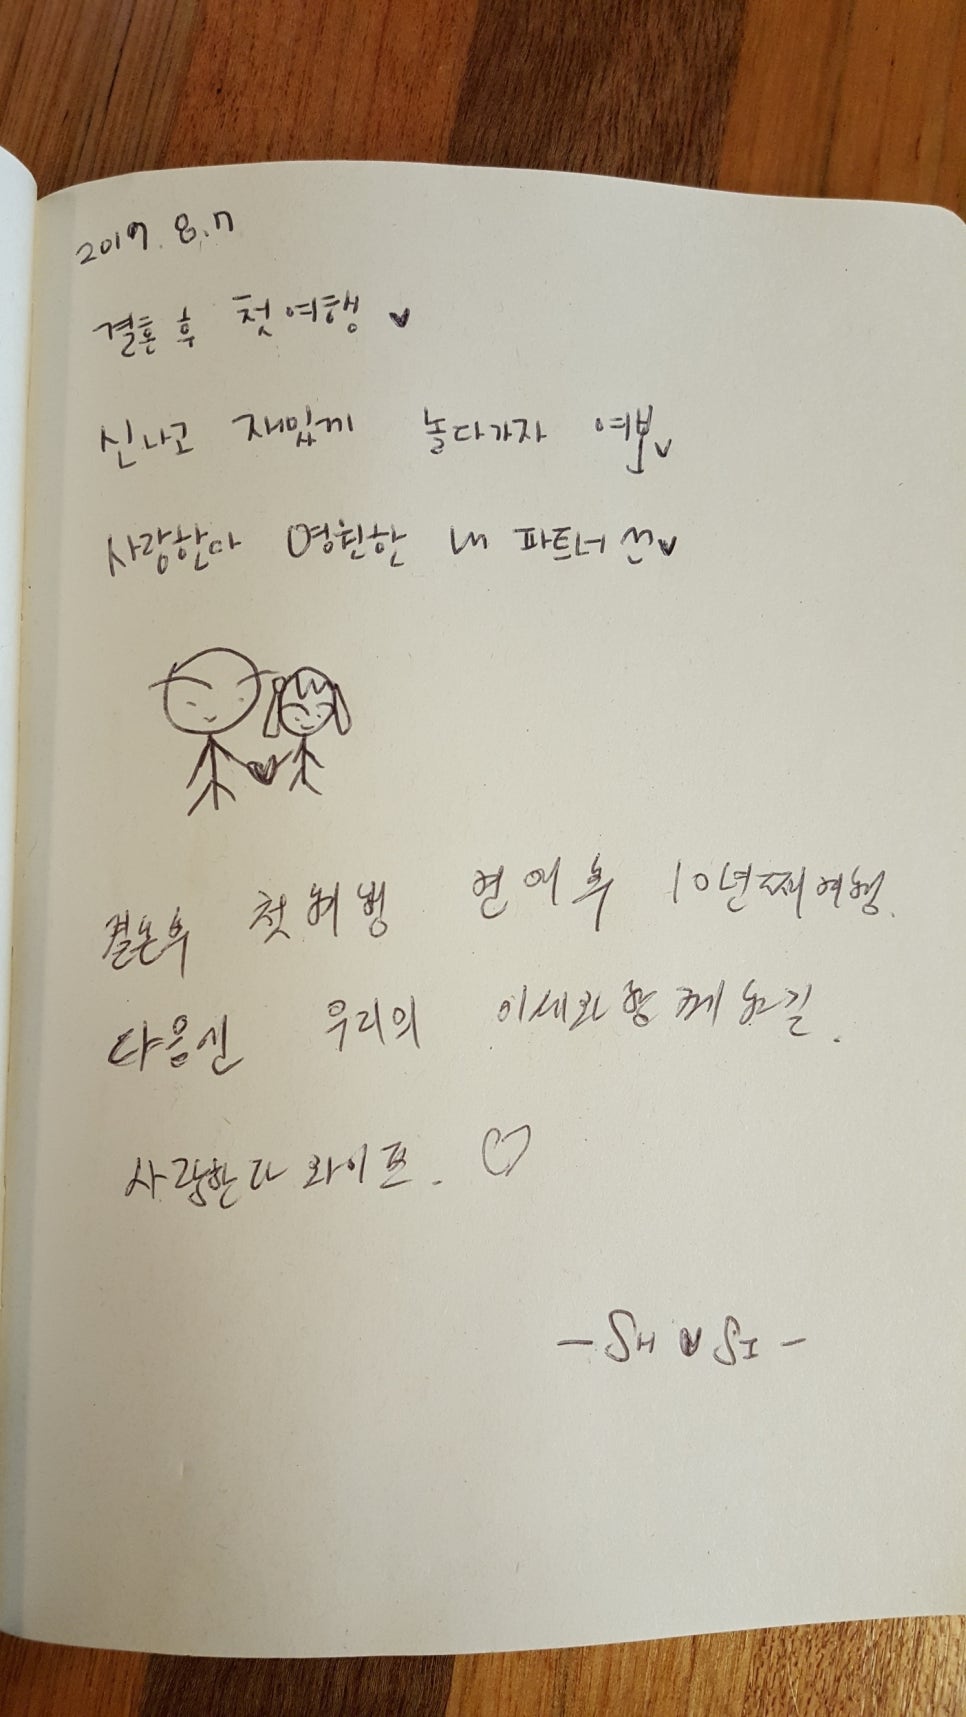 2017. 8. 7
결혼 후 첫여행 ♥
신나고 재밌께 놀다가자 여보♥
사랑한다 영원한 내 파트너 ♥
결혼후 첫여행 연애후 10년째여행.
다음엔 우리의 이세와함께오길.
사랑한다 와이프. ♡
- SH ♥ SI -